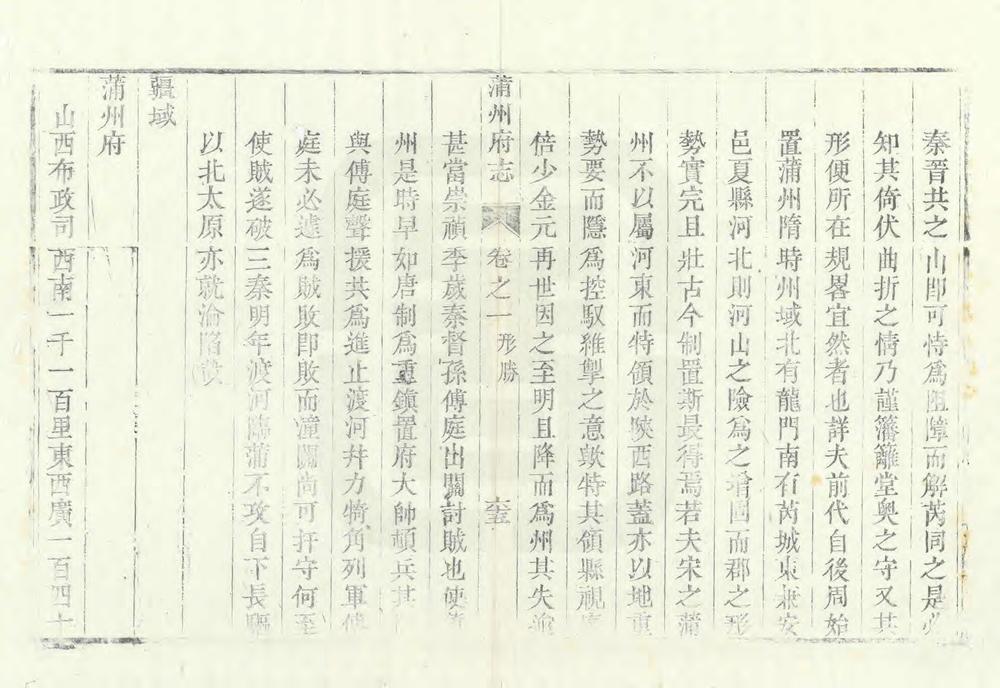 秦晉共之山即可恃爲阻障而解芮同之是必
知其倚伏曲折之情乃謹籓籬堂奧之守又其
形便所在規畧宜然者也詳夫前代自後周始
置蒲州隋時州域北有龍門南有芮城東兼安
邑夏縣河北則河山之險爲之增固而郡之形
勢實完且壯古今制置斯最得焉若夫宋之蒲
州不以屬河東而特領於陝西路蓋亦以地重
勢要而隱爲控馭維掣之意歟特其領縣視
倍少金元再世因之至明且降而爲州其失
蒲州府志 卷之一 形勝
甚當崇禎季歲秦督孫傅庭出關討賊也使
州是時早如唐制爲重鎮置府大帥頓兵其
與傅庭聲援共爲進止渡河并力犄角列軍傅
庭未必遽爲賊敗即敗而潼關尚可扞守何至
使賊遂破三秦明年渡河臨蒲不攻自下長驅
以北太原亦就淪陷
疆域
蒲州府
山西布政司西南一千一百里東西廣一百四十